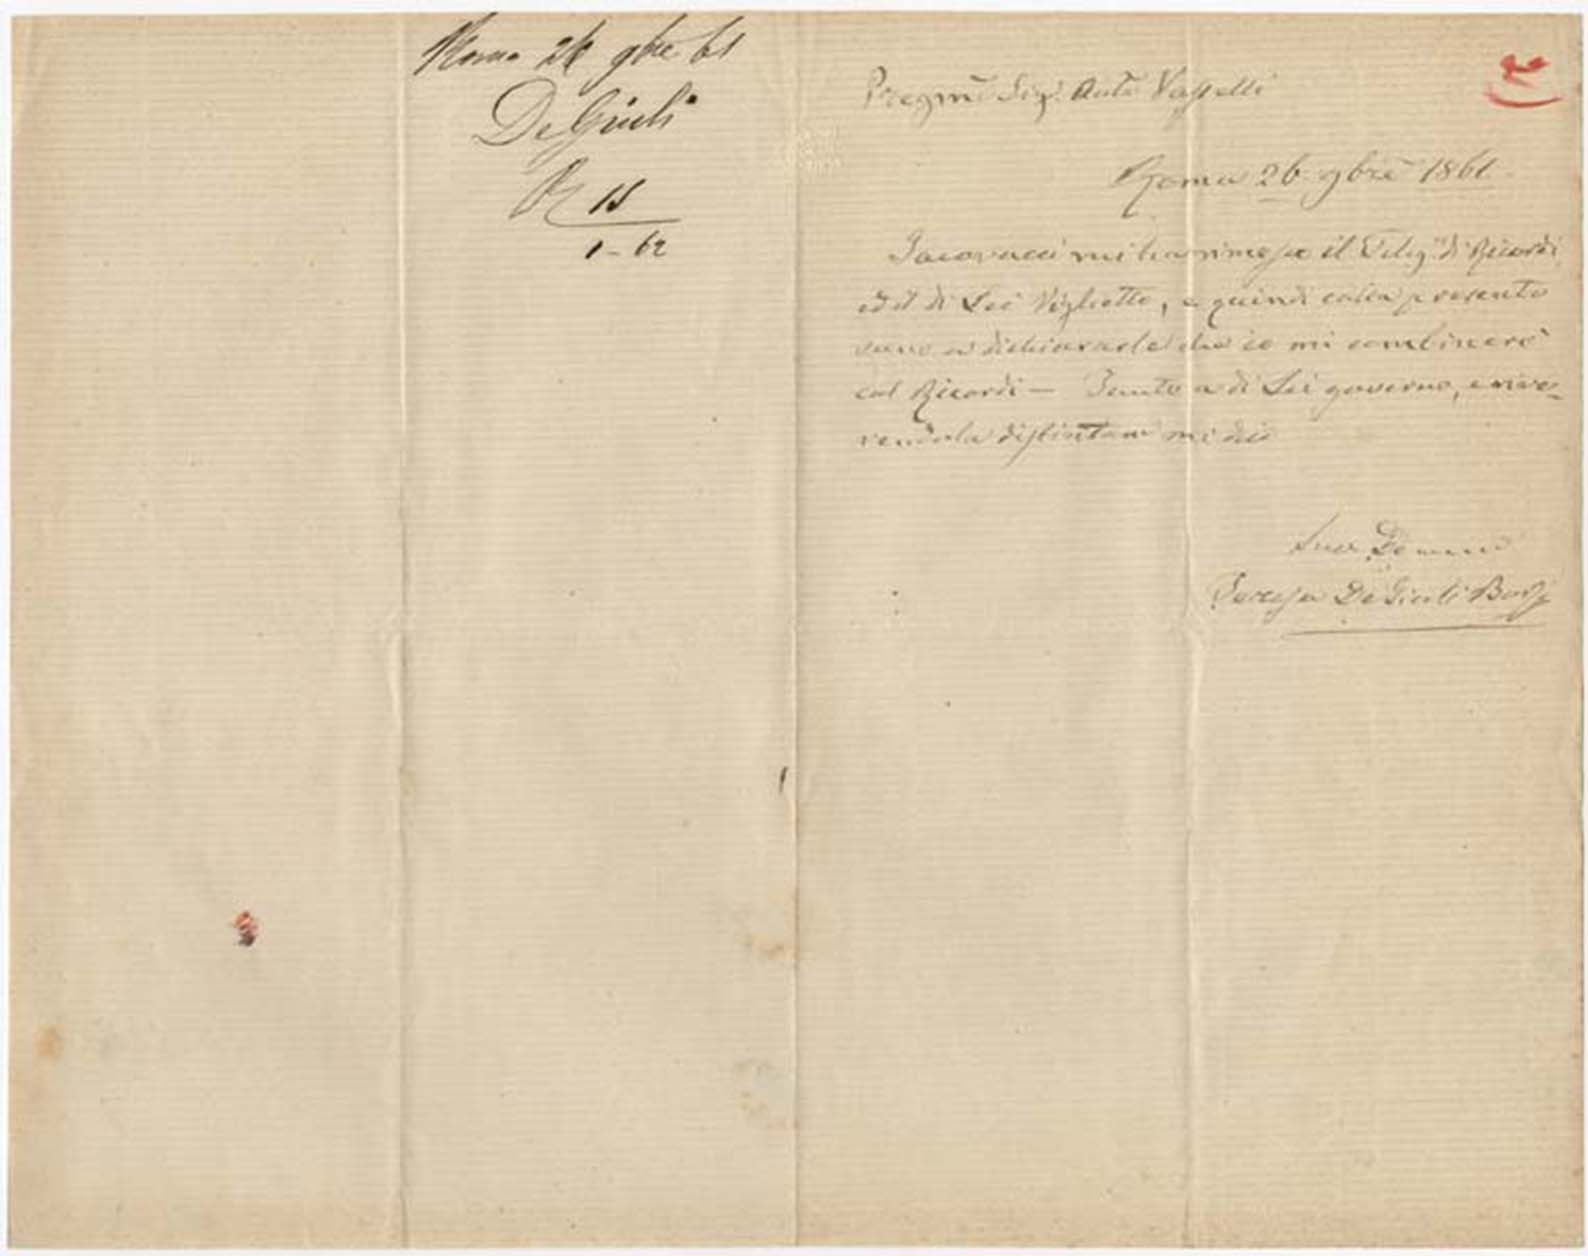 Roma 26 9bre 61
De Giuli
R 15
1 - 62
Pregmo Sigr. Anto Vasselli
Roma 26. 9bre 1861.
Jacovacci mi ha rimesso il Teleg. di Ricordi
ed il di Lei Viglietto, e quindi colla presente
sono a dichiararle che io mi combinerò
col Ricordi — Tanto a di Lei governo, e rive-
rendola distintame mi dico
Sua
Teresa De Giuli Borsi